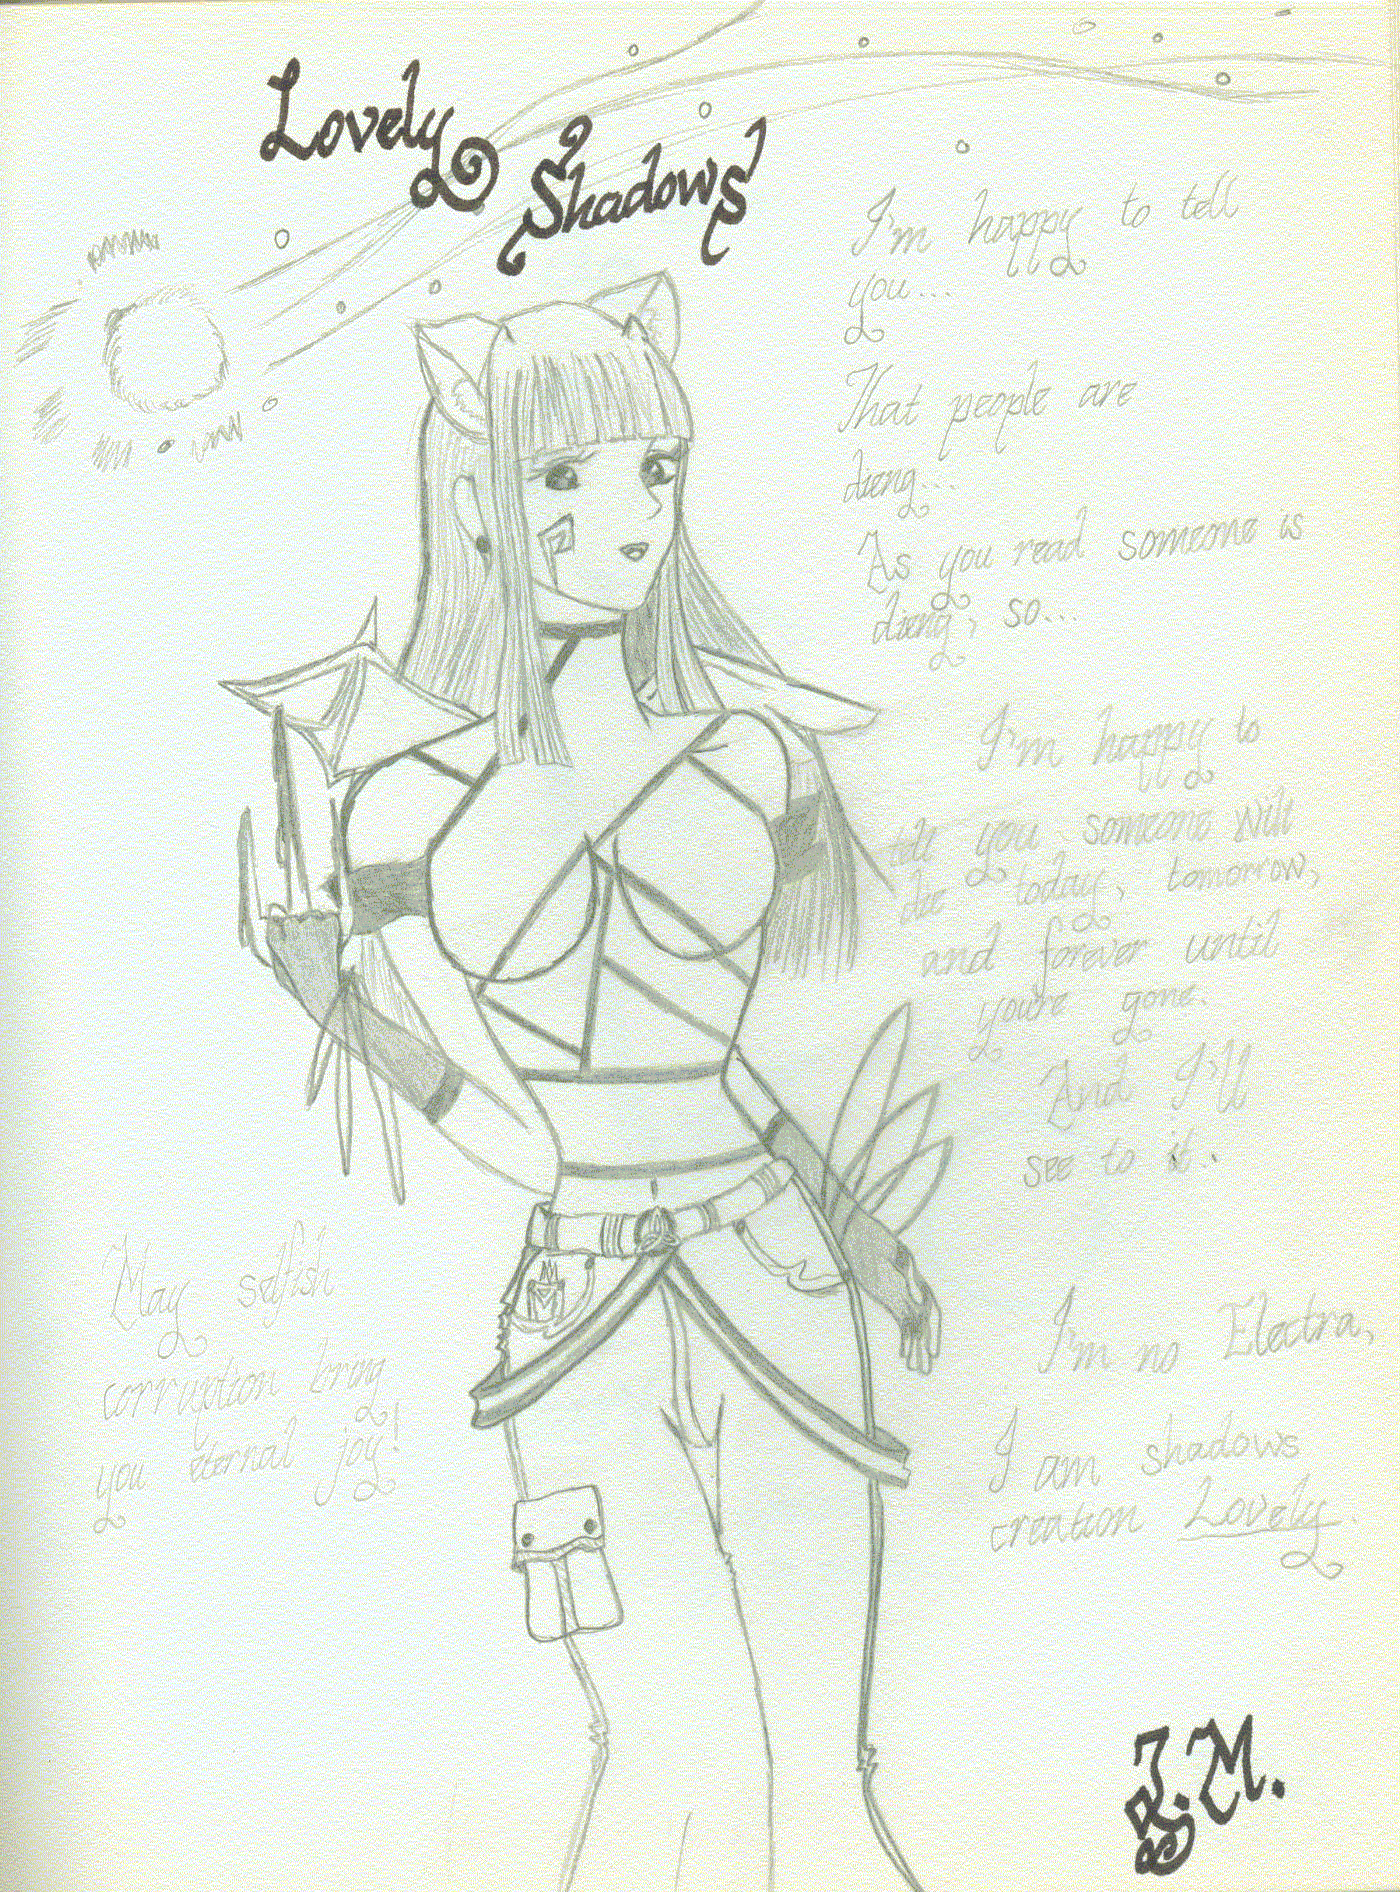 Lovely
Shadows
I'm happy to tell
you...
That people are
dieng...
As you read someone is
dieng, so...
I'm happy to
tell you someone will
die today, tomorrow,
and forever until
you're gone.
And I'll
see to it..
May selfish
corruption bring
you eternal joy!
I'm no Electra,
I am shadows
creation Lovely.
J.M.